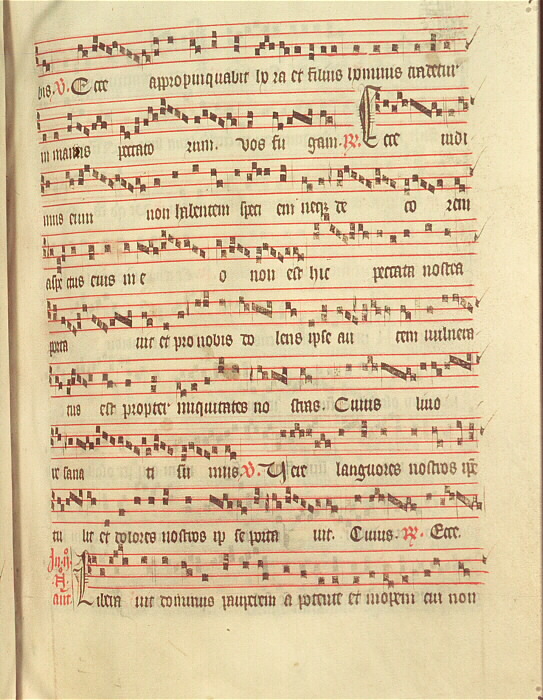 bis. V. Ecce appropinquabit ho ra et filius hominis tradetur
in manus peccato rum. vos fu gam. R. Ecce vidi
mus eum non habentem speci em neqz de co rem
aspe ctus eius in e o non est hic peccata nostra
porta vit et pro nobis do lens ipse au tem vulnera
tus est propter iniquitates no stras. Cuius livo
re sana ti su mus. V. Vere languores nostros ipse
tu lit et dolores nostros ip se porta vit. Cuius. R. Ecce.
ant. Libera vit dominus pauperem a potente et inopem cui non